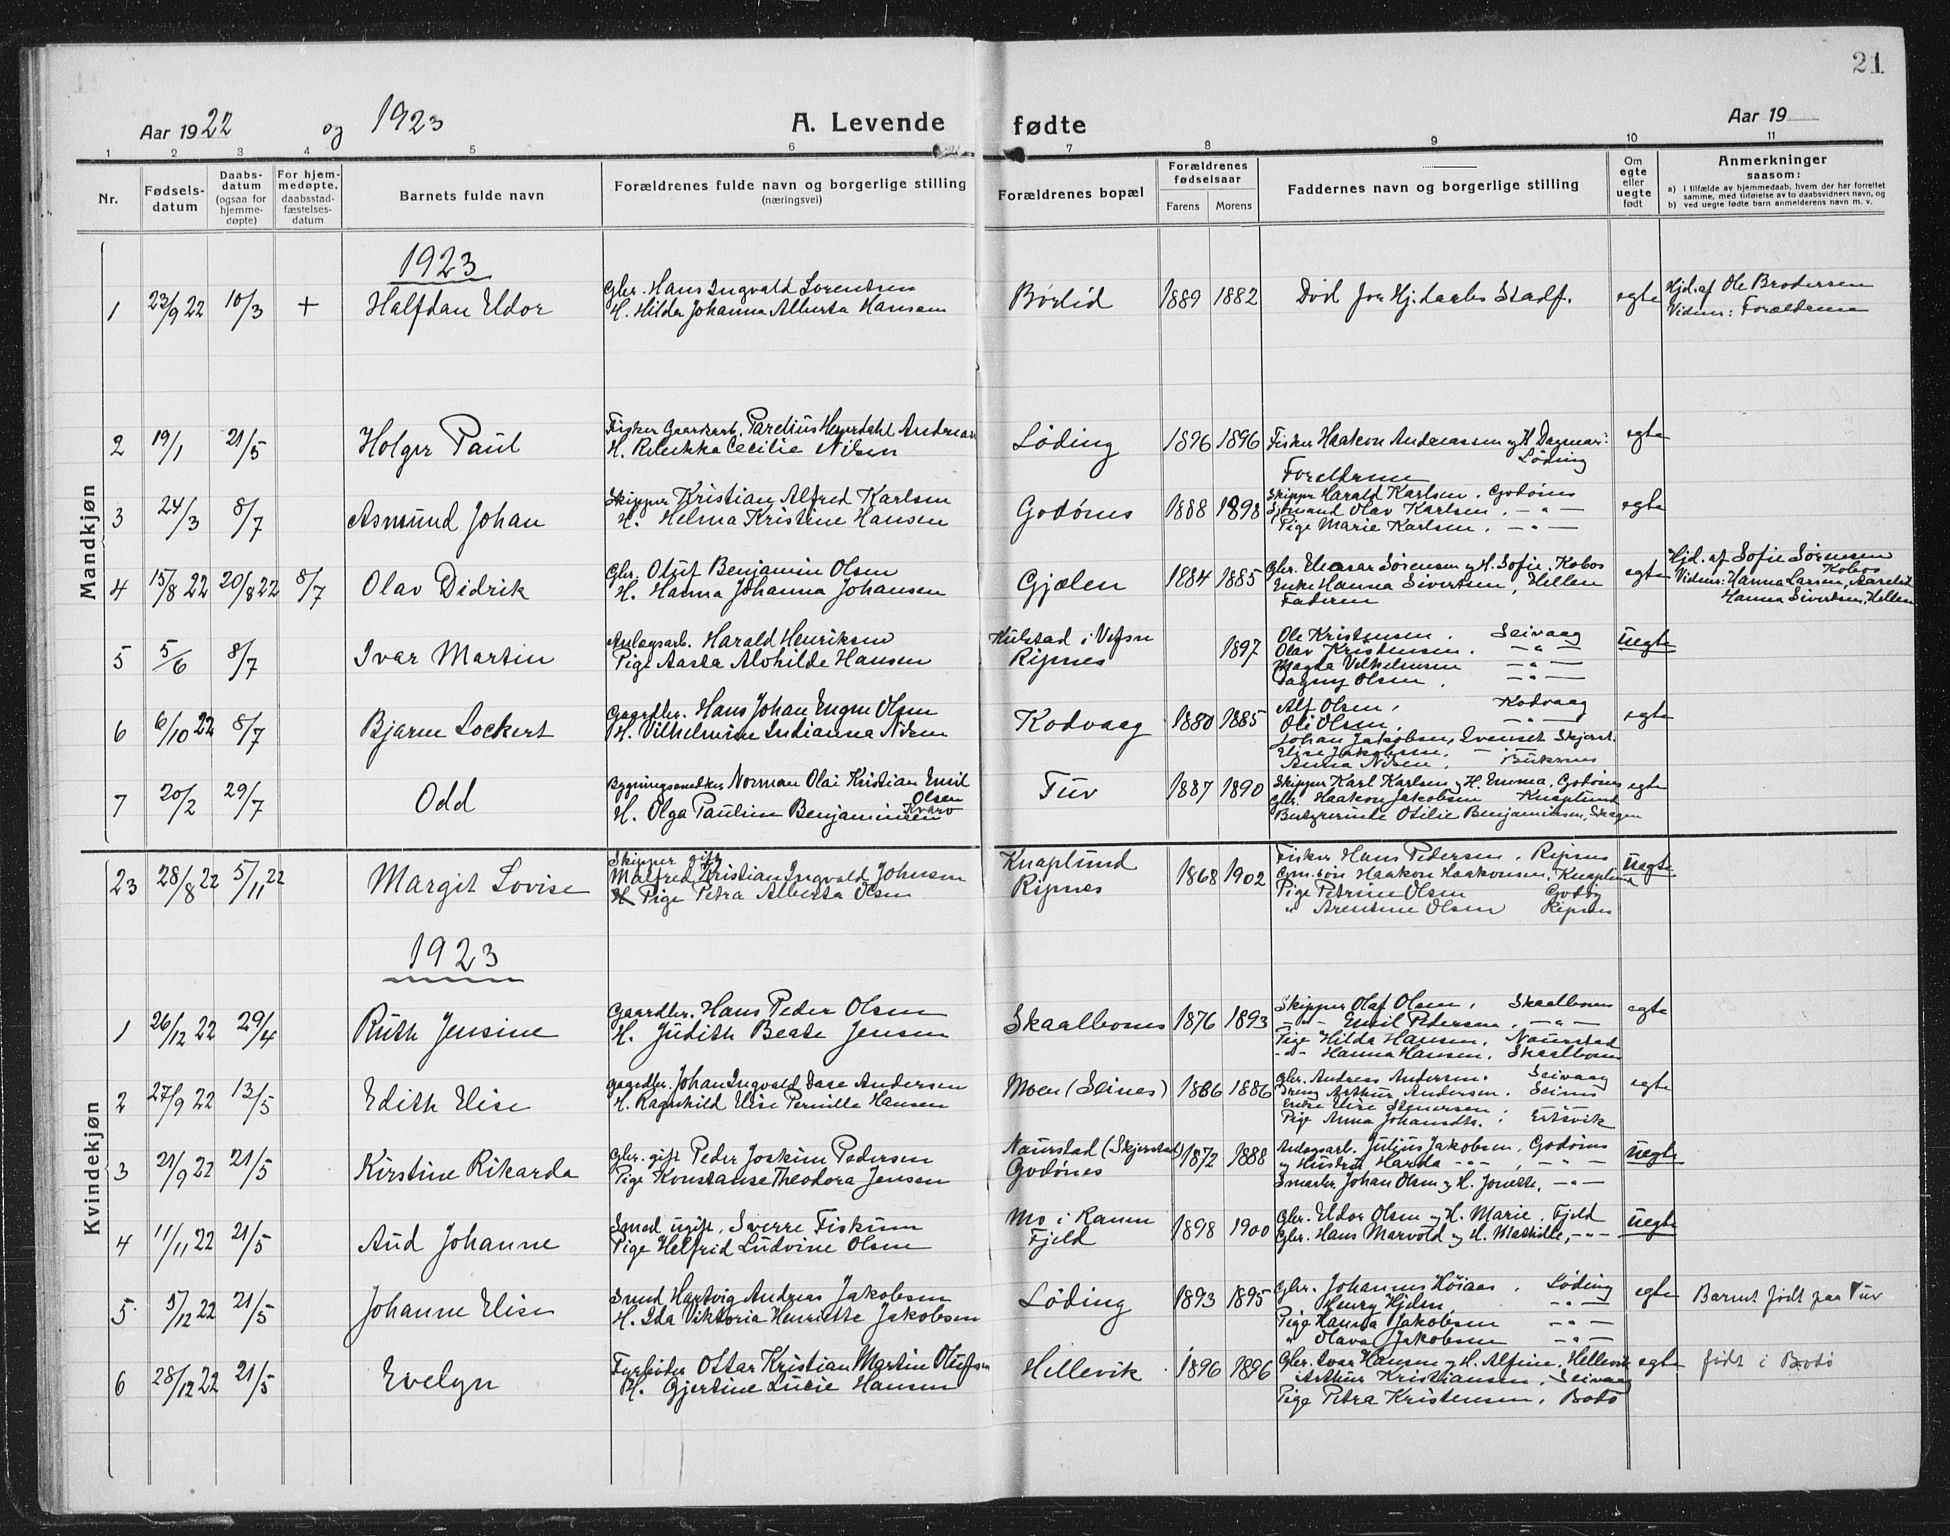 21
Aar 1922 og 1923
A. Levende fødte
Aar 19
1 2 3 4 5 6 7 8 9 10 11
Nr.
Fødselsdatum
Daabsdatum (ogsaa for hjemmedøpte)
For hjemmedøpte, daabsstadfæstelsesdatum
Barnets fulde navn
Forældrenes fulde navn og borgerlige stilling
(næringsvei)
Forældrenes bopæl
Forældrenes fødselsaar
Farens Morens
Faddernes navn og borgerlige stilling
Om egte eller uegte født
Anmerkninger
saasom:
a) i tilfælde av hjemmedaab, hvem der har forrettet samme, med tilføielse av to daabsvidners navn, og
b) ved uegte fødte barn anmelderens navn m. v.
Mandkjøn
1923
1 23/9 22 10/3 + Halfdan Eldor
Gbr. Hans Ingvald Lorentsen
H. Hilda Johanna Alberta Hansen
Børlid 1889 1882
Død før Hj.daabs Stadf.
egte
Hjd. af Ole Brodersen
Vidner: Forældrene
2 19/1 21/5 Holger Paul
Fisker Gaardarb. Parelius Heyerdahl Andreas
H. Rebekka Cecilie Nilsen
Løding 1896 1896
Fisker Haakon Andreassen og H. Dagmar
Løding
Foreldrene
egte
3 24/3 8/7 Asmund Johan
Skipper Kristian Alfred Karlsen
H. Helma Kristine Hansen
Godønes 1888 1898
Skipper Harald Karlsen. Godønes
Sømand Olav Karlsen. - " -
Pige Marie Karlsen. - " -
egte
4 15/8 22 20/8 22 8/7 Olav Didrik
Gbr. Oluf Benjamin Olsen
H. Hanna Johanna Johansen
Gjælen 1884 1885
Gbr. Eleasar Sørensen og H. Sofie. Kobos
Enke Hanna Sivertsen, Hellen
Faderen
egte
Hjd. af Sofie Sørensen
Kobos
Vidner: Hanna Larsen,
Hanna Sivertsen, Hellen
5 5/6 8/7 Ivar Martin
Anlegsarb. Harald Henriksen
Pige Aasta Alvhilde Hansen
Kulstad i Vefsn
Ripnes
1897
Ole Kristensen. Seivaag
Olav Kristensen. - " -
Magda Vilhelmsen - " -
Dagny Olsen. - " -
uegte
6 6/10 22 8/7 Bjarne Lockert
Gaardbr. Hans Johan Engen Olsen
H. Vilhelmine Indianna Nilsen
Kodvaag 1880 1885
Alf Olsen, Kodvaag
Ole Olsen, - " -
Johan Jakobsen, Evenset Skjerst.
Elise Jakobsen, - " -
Anna Nilsen,
egte
7 20/2 29/7 Odd
Bygningssnekker Norman Olai Kristian Emil
Olsen
Kvarv
H. Olga Pauline Benjaminsen
Tuv 1887 1890
Skipper Karl Karlsen og H. Emma, Godønes
Gbr. Haakon Jakobsen Knaplund
Bestyrerinde Otilie Benjaminsen, Skagen
egte
Kvindekjøn
23 28/8 22 5/11 22 Margit Lovise
Skipper gift
Malfred Kristian Ingvald Johnsen
H Pige Petra Alberta Olsen
Knaplund
Ripnes
1868 1902
Fisker Hans Pedersen. Ripnes
Gm.søn Haakon Haakonsen, Knaplund
Pige Petrine Olsen Godøy
" Arentine Olsen Ripnes
uegte
1923
1 26/12 22 29/4 Ruth Jensine
Gaardbr. Hans Peder Olsen
H. Judith Beate Jensen
Skaalbones 1876 1893
Skipper Olaf Olsen, Skaalbones
- " - Emil Pedersen, - " -
Pige Hilda Hansen, Naurstad
- " - Hanna Hansen. Skaalbones
egte
2 27/9 22 13/5 Edith Elise
Gaardbr. Johan Ingvald Dase Andersen
H. Ragnhild Elise Pernille Hansen
Moen (Seines) 1886 1886
Gbr. Andreas Andersen. Seivaag
Dreng Arthur Andersen. Seines
Enke Elise Stenersen
Pige Anna Johansdtr. Ertsvik
egte
3 21/9 22 21/5 Kirstine Rikarda
Gbr. gift Peder Joakim Pedersen
Pige Konstanse Theodora Jensen
Naurstad (Skjerstad)
Godønes
1872 1888
Anlegsarb. Julius Jakobsen, Godønes
og Hustru Harda - " -, - " -
Smarbr. Johan Olsen og H. Jonette, - " -
uegte
4 11/11 22 21/5 Aud Johanne
Smed ugift, Sverre Fiskum
Pige Helfrid Ludvine Olsen
Mo i Ranen
Fjeld
1898 1900
Gbr. Eldor Olsen og H. Marie. Fjeld
Gbr. Hans Marvold og H. Mathilde, - " -
uegte
5 5/12 22 21/5 Johanne Elise
Smed Hartvig Andreas Jakobsen
H. Ida Viktoria Henriette Jakobsen
Løding 1893 1895
Gbr. Johannes Høiaas, Løding
Henry Hjelen, - " -
Pige Hanna Jakobsen - " -
" Olava Jakobsen - " -
egte
Barnet født paa Tuv
6 28/12 22 21/5 Evelyn
Fyrbøder Ottar Kristian Martin Olufsen
H. Gjertine Lucie Hansen
Hellevik 1896 1896
Gbr. Ivar Hansen og H. Alfine, Hellevik
Arthur Kristiansen, Seivaag
Pige Petra Kristensen, Bodø
egte
født i Bodø